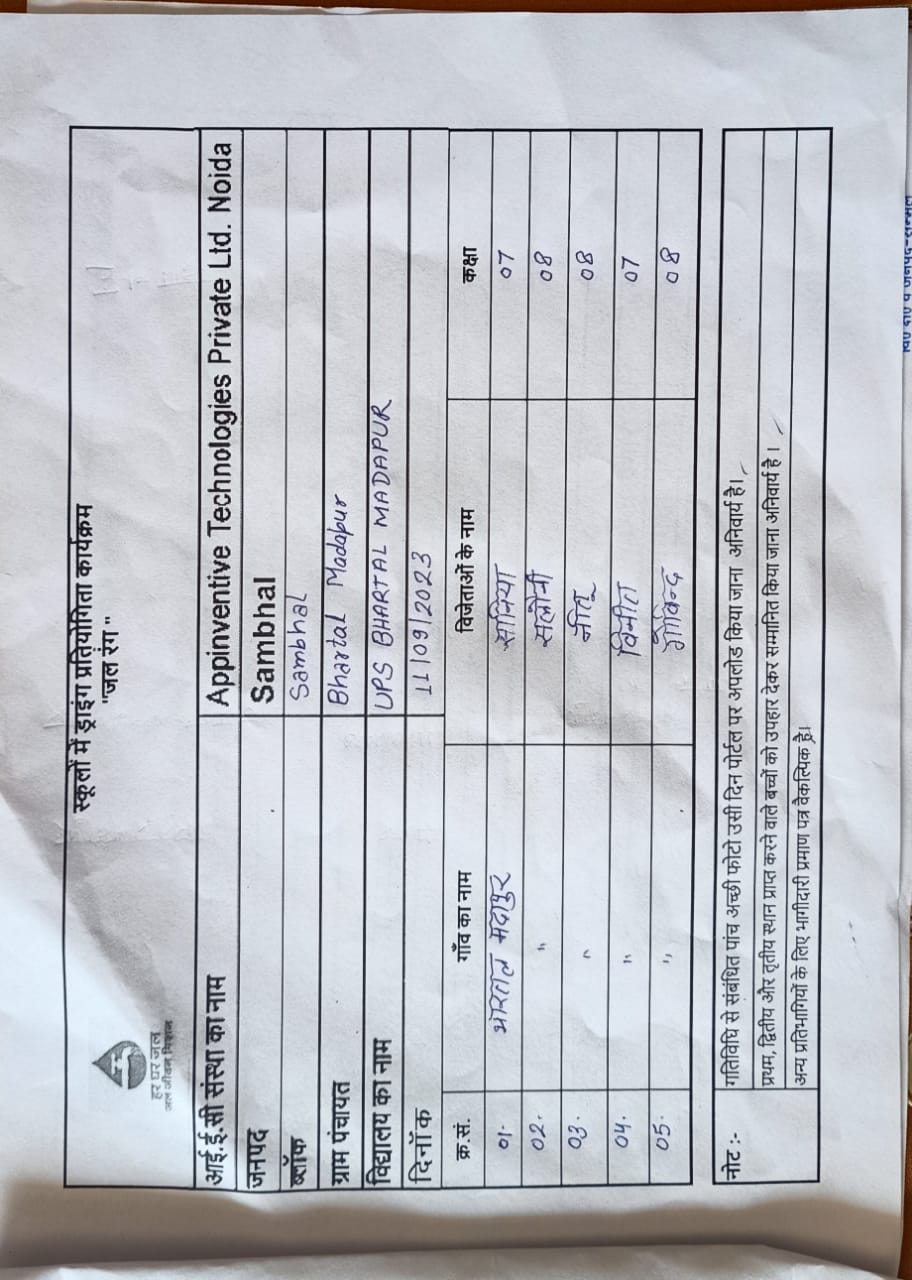 स्कूलों में ड्राइंग प्रतियोगिता कार्यक्रम
"जल रंग"
हर घर जल
जल जीवन मिशन
आई.ई.सी संस्था का नाम Appinventive Technologies Private Ltd. Noida
जनपद Sambhal
ब्लॉक Sambhal
ग्राम पंचायत Bhartal Madapur
विद्यालय का नाम UPS BHARTAL MADAPUR
दिनॉक 11/09/2023
क्र.सं. गाँव का नाम विजेताओं के नाम कक्षा
01. भारतल मदापुर सोनिया 07
02. " सलोनी 08
03. " नीतू 08
04. " विनीता 07
05. " गोबिन्द 08
नोट :- गतिविधि से संबंधित पांच अच्छी फोटो उसी दिन पोर्टल पर अपलोड किया जाना अनिवार्य है।
प्रथम, द्वितीय और तृतीय स्थान प्राप्त करने वाले बच्चों को उपहार देकर सम्मानित किया जाना अनिवार्य है।
अन्य प्रतिभागियों के लिए भागीदारी प्रमाण पत्र वैकल्पिक है।